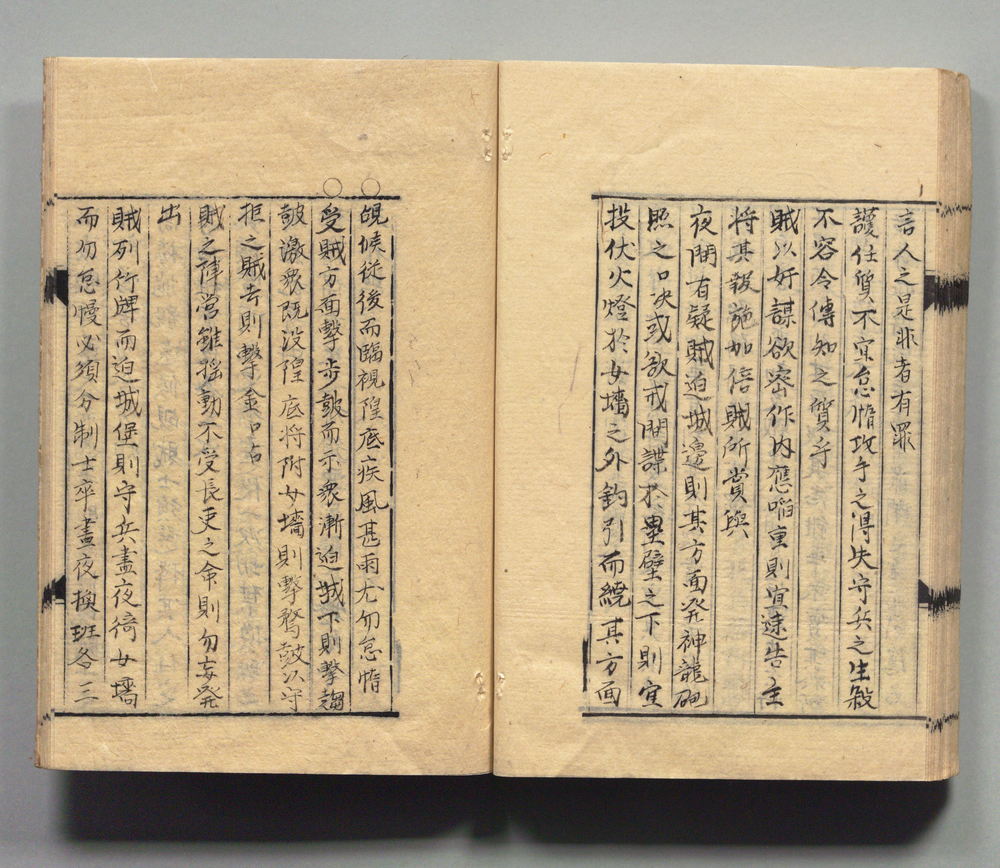 言人之是非者有罪
護任質不宜怠惰攻手之得失守兵之生殺
不容令傳知之質乎
賊以奸謀欲密作内應啗重則宜速告主
將其報施加倍賊所賞與
夜間有疑賊迫城邊則其方面発神龍砲
照之口决或欲戒間諜於壘壁之下則宜
投伏火燈於女墻之外鈎引而繞其方面
○覘候従後而臨視隍底疾風甚雨尤勿怠惰
○受賊方面擊步皷而示衆漸迫城下則擊趨
皷激衆既没隍底将附女墻則擊鶩皷以守
拒之賊去則擊金口占
賊之陣営雖揺動不受長吏之命則勿妄発
出
賊列竹牌而迫城堡則守兵盡夜倚女墻
而勿怠慢必須分制士卒晝夜換班各三